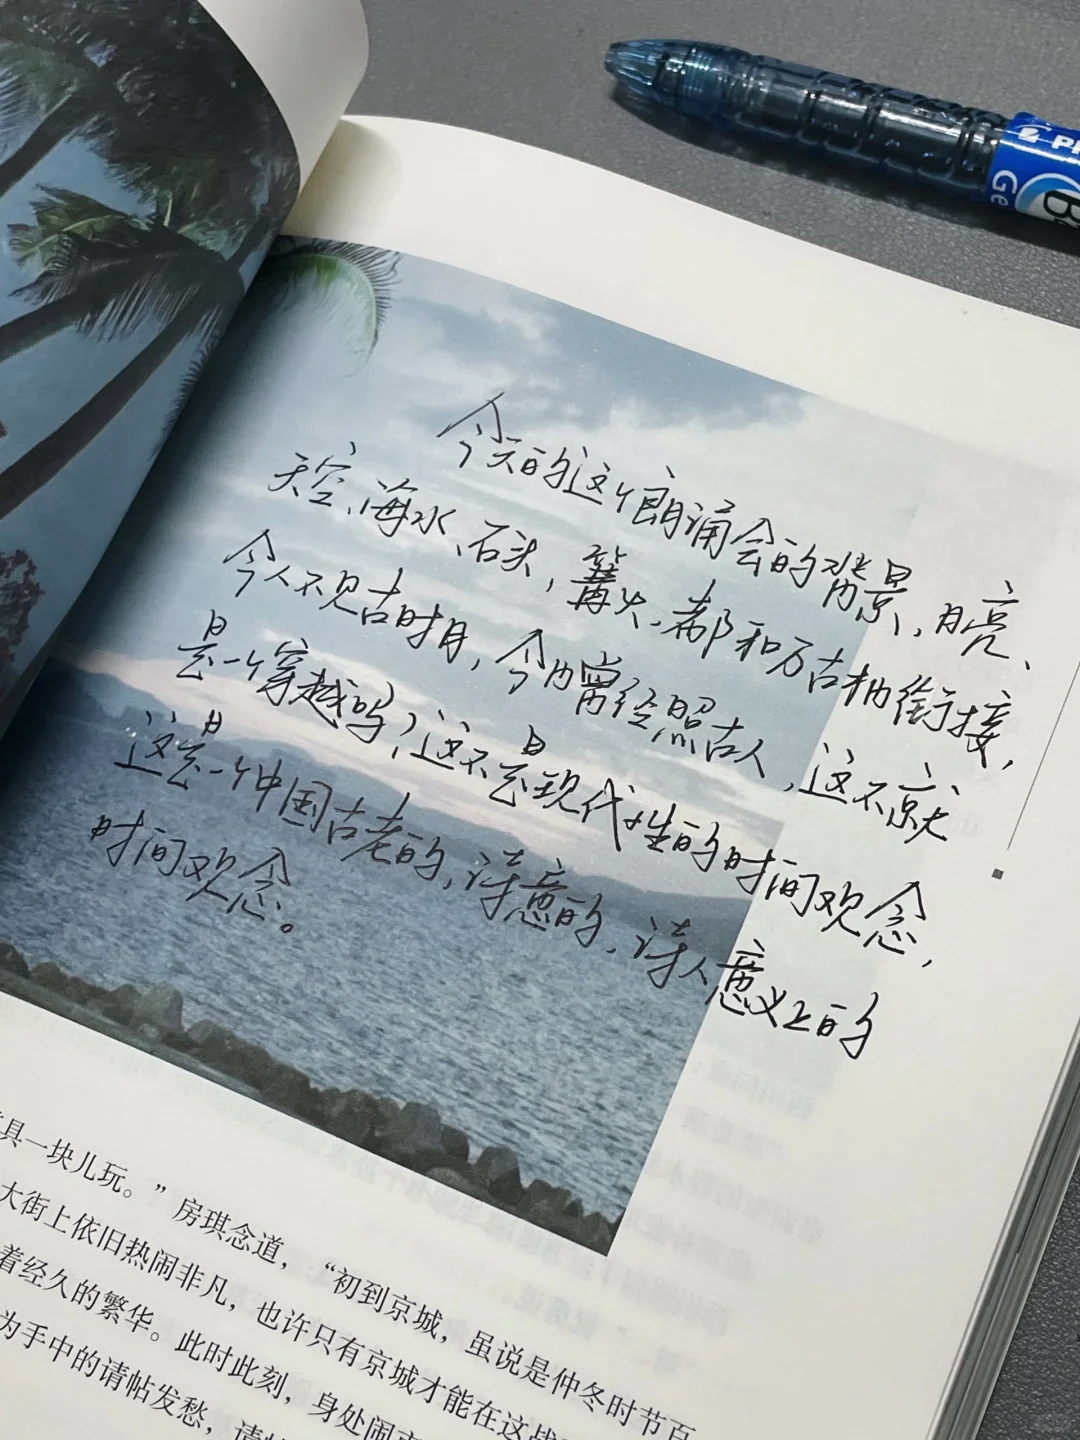 今天的这个朗诵会的背景,月亮、
天空、海水、石头,篝火、都和万古相衔接,
今人不见古时月,今月曾经照古人,这不就
是一个穿越吗?这不是现代性的时间观念,
这是一个中国古老的,诗意的,诗人意义上的
时间观念。
具一块儿玩。”房琪念道,“初到京城,虽说是仲冬时节百
大街上依旧热闹非凡,也许只有京城才能在这战
着经久的繁华。此时此刻,身处闹
为手中的请帖发愁,请
Ge